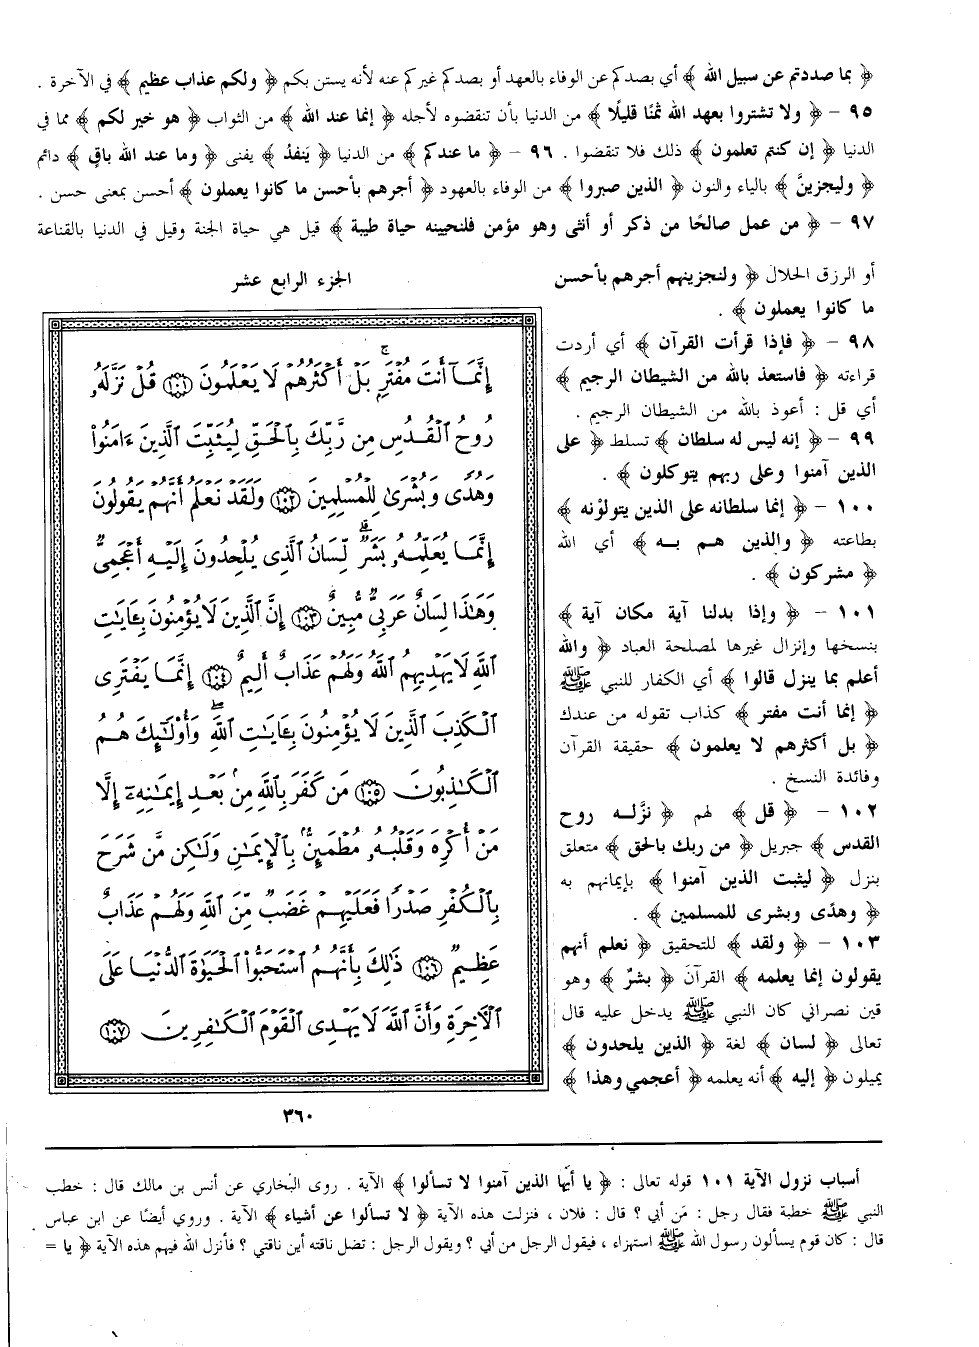 ﴿ بما صددتم عن سبيل الله ﴾ أي بصدكم عن الوفاء بالعهد أو بصدكم غيركم عنه لأنه يستن بكم ﴿ ولكم عذاب عظيم ﴾ في الآخرة .
٩٥ – ﴿ ولا تشتروا بعهد الله ثمنًا قليلًا ﴾ من الدنيا بأن تنقضوه لأجله ﴿ إنما عند الله ﴾ من الثواب ﴿ هو خير لكم ﴾ مما في
الدنيا ﴿ إن كنتم تعلمون ﴾ ذلك فلا تنقضوا . ٩٦ – ﴿ ما عندكم ﴾ من الدنيا ﴿ ينفدُ ﴾ يفنى ﴿ وما عند الله باقٍ ﴾ دائم
﴿ وليجزينَّ ﴾ بالياء والنون ﴿ الذين صبروا ﴾ من الوفاء بالعهود ﴿ أجرهم بأحسن ما كانوا يعملون ﴾ أحسن بمعنى حسن .
٩٧ – ﴿ من عمل صالحًا من ذكر أو أنثى وهو مؤمن فلنحيينه حياة طيبة ﴾ قيل هي حياة الجنة وقيل في الدنيا بالقناعة
أو الرزق الحلال ﴿ ولنجزينهم أجرهم بأحسن
ما كانوا يعملون ﴾ .
٩٨ – ﴿ فإذا قرأت القرآن ﴾ أي أردت
قراءته ﴿ فاستعذ بالله من الشيطان الرجيم ﴾
أي قل : أعوذ بالله من الشيطان الرجيم .
٩٩ – ﴿ إنه ليس له سلطان ﴾ تسلط ﴿ على
الذين آمنوا وعلى ربهم يتوكلون ﴾ .
١٠٠ – ﴿ إنما سلطانه على الذين يتولوْنه ﴾
بطاعته ﴿ والذين هم به ﴾ أي الله
﴿ مشركون ﴾ .
١٠١ – ﴿ وإذا بدلنا آية مكان آية ﴾
بنسخها وإنزال غيرها لمصلحة العباد ﴿ والله
أعلم بما ينزل قالوا ﴾ أي الكفار للنبي ﷺ
﴿ إنما أنت مفتر ﴾ كذاب تقوله من عندك
﴿ بل أكثرهم لا يعلمون ﴾ حقيقة القرآن
وفائدة النسخ .
١٠٢ – ﴿ قل ﴾ لهم ﴿ نزَّله روح
القدس ﴾ جبريل ﴿ من ربك بالحق ﴾ متعلق
بنزل ﴿ ليثبت الذين آمنوا ﴾ بإيمانهم به
﴿ وهدًى وبشرى للمسلمين ﴾ .
١٠٣ – ﴿ ولقد ﴾ للتحقيق ﴿ نعلم أنهم
يقولون إنما يعلمه ﴾ القرآن ﴿ بشرٌ ﴾ وهو
قين نصراني كان النبي ﷺ يدخل عليه قال
تعالى ﴿ لسان ﴾ لغة ﴿ الذين يلحدون ﴾
يميلون ﴿ إليه ﴾ أنه يعلمه ﴿ أعجمي وهذا ﴾
الجزء الرابع عشر
إِنَّمَآ أَنتَ مُفۡتَرِۭۚ بَلۡ أَكۡثَرُهُمۡ لَا يَعۡلَمُونَ ١٠١ قُلۡ نَزَّلَهُۥ
رُوحُ ٱلۡقُدُسِ مِن رَّبِّكَ بِٱلۡحَقِّ لِيُثَبِّتَ ٱلَّذِينَ ءَامَنُواْ
وَهُدٗى وَبُشۡرَىٰ لِلۡمُسۡلِمِينَ ١٠٢ وَلَقَدۡ نَعۡلَمُ أَنَّهُمۡ يَقُولُونَ
إِنَّمَا يُعَلِّمُهُۥ بَشَرٞۗ لِّسَانُ ٱلَّذِي يُلۡحِدُونَ إِلَيۡهِ أَعۡجَمِيّٞ
وَهَٰذَا لِسَانٌ عَرَبِيّٞ مُّبِينٌ ١٠٣ إِنَّ ٱلَّذِينَ لَا يُؤۡمِنُونَ بِـَٔايَٰتِ
ٱللَّهِ لَا يَهۡدِيهِمُ ٱللَّهُ وَلَهُمۡ عَذَابٌ أَلِيمٌ ١٠٤ إِنَّمَا يَفۡتَرِي
ٱلۡكَذِبَ ٱلَّذِينَ لَا يُؤۡمِنُونَ بِـَٔايَٰتِ ٱللَّهِۖ وَأُوْلَٰٓئِكَ هُمُ
ٱلۡكَٰذِبُونَ ١٠٥ مَن كَفَرَ بِٱللَّهِ مِنۢ بَعۡدِ إِيمَٰنِهِۦٓ إِلَّا
مَنۡ أُكۡرِهَ وَقَلۡبُهُۥ مُطۡمَئِنُّۢ بِٱلۡإِيمَٰنِ وَلَٰكِن مَّن شَرَحَ
بِٱلۡكُفۡرِ صَدۡرٗا فَعَلَيۡهِمۡ غَضَبٞ مِّنَ ٱللَّهِ وَلَهُمۡ عَذَابٌ
عَظِيمٞ ١٠٦ ذَٰلِكَ بِأَنَّهُمُ ٱسۡتَحَبُّواْ ٱلۡحَيَوٰةَ ٱلدُّنۡيَا عَلَى
ٱلۡأٓخِرَةِ وَأَنَّ ٱللَّهَ لَا يَهۡدِي ٱلۡقَوۡمَ ٱلۡكَٰفِرِينَ ١٠٧
٣٦٠
أسباب نزول الآية ١٠١ قوله تعالى : ﴿ يا أيها الذين آمنوا لا تسألوا ﴾ الآية . روى البخاري عن أنس بن مالك قال : خطب
النبي ﷺ خطبة فقال رجل : مَن أبي ؟ قال : فلان ، فنزلت هذه الآية ﴿ لا تسألوا عن أشياء ﴾ الآية . وروي أيضًا عن ابن عباس
قال : كان قوم يسألون رسول الله ﷺ استهزاء ، فيقول الرجل من أبي ؟ ويقول الرجل : تضل ناقته أين ناقتي ؟ فأنزل الله فيهم هذه الآية ﴿ يا =